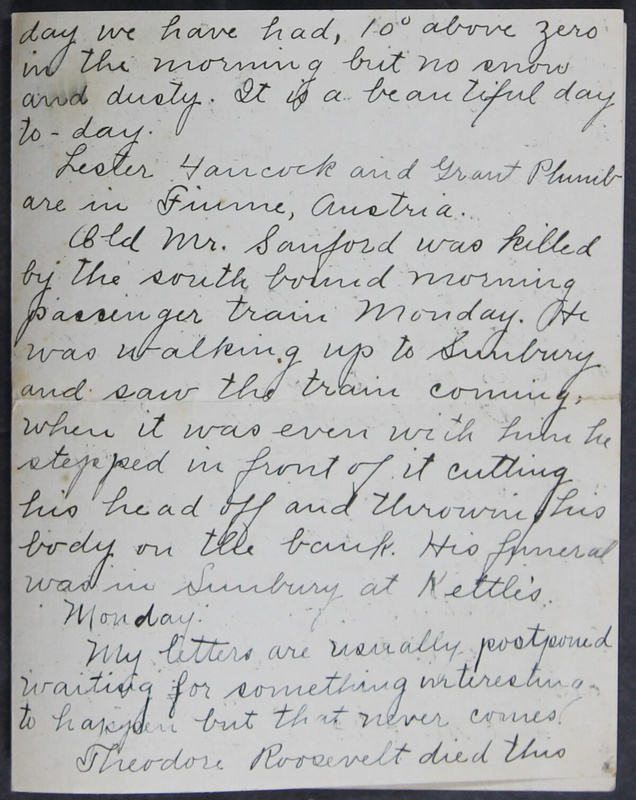 day we have had, 10° above zero
in the morning but no snow
and dusty. It is a beautiful day
to-day.
Lester Hancock and Grant Plumb
are in Fiume, Austria.
Old Mr. Sanford was killed
by the south bound morning
passenger train Monday. He
was walking up to Sunbury
and saw the train coming,
when it was even with him he
stepped in front of it cutting
his head off and throwing his
body on the bank. His funeral
was in Sunbury at Kettle's.
Monday.
My letters are usually postponed
waiting for something interesting
to happen but that never comes.
Theodore Roosevelt died this